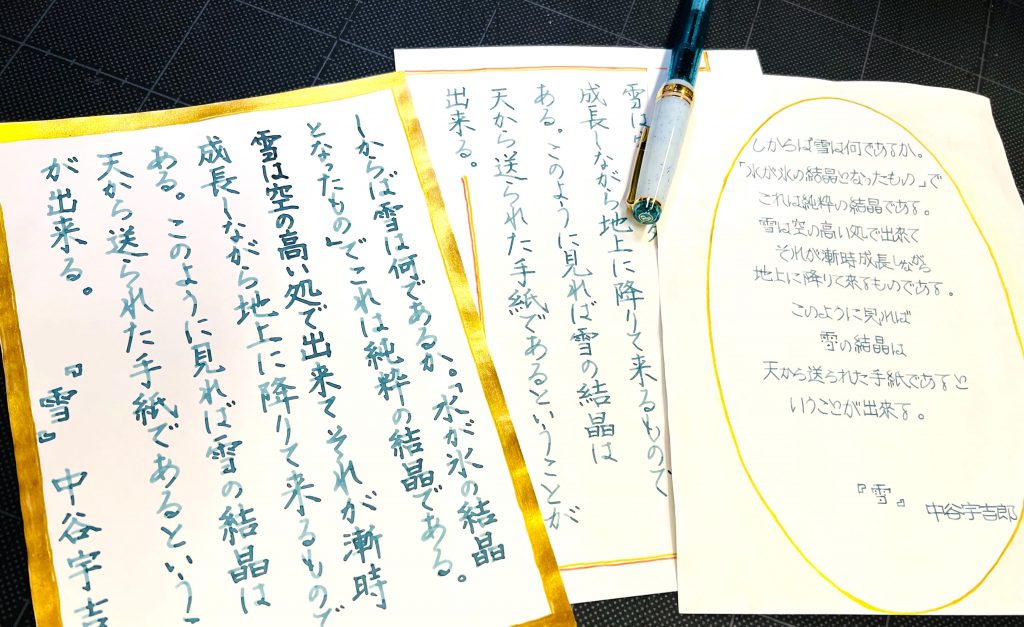 しからば雪は何であるか。「水が氷の結晶
となったもの」でこれは純粋の結晶である。
雪は空の高い処で出来てそれが漸時
成長しながら地上に降りて来るもので
ある。このように見れば雪の結晶は
天から送られた手紙であるというこ
が出来る。
『雪』 中谷宇吉
雪は
成長しながら地上に降りて来るもので
ある。このように見れば雪の結晶は
天から送られた手紙であるということが
出来る。
しからば雪は何であるか。
「水が氷の結晶となったもの」で
これは純粋の結晶である。
雪は空の高い処で出来て
それが漸時成長しながら
地上に降りて来るものである。
このように見れば
雪の結晶は
天から送られた手紙であると
いうことが出来る。
『雪』 中谷宇吉郎